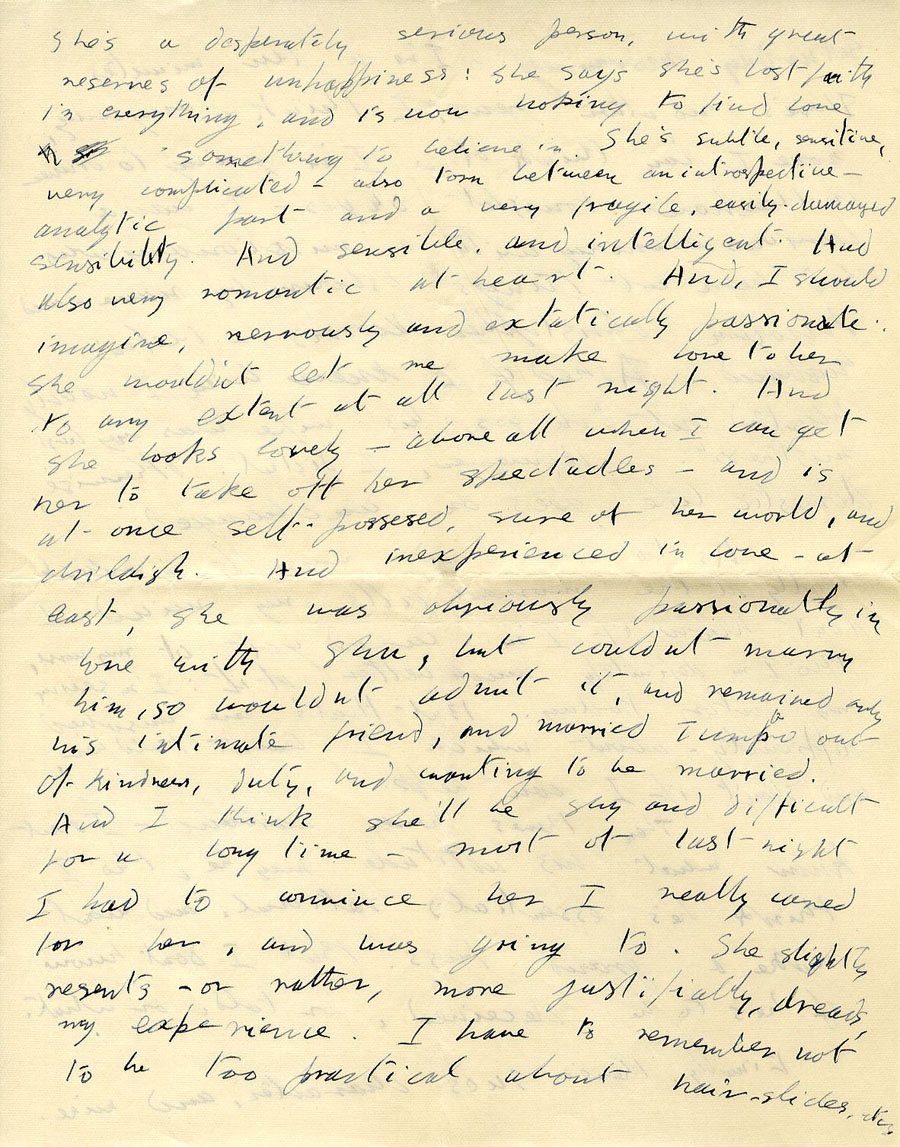 She's a desperately serious person, with great
reserves of unhappiness: she says she's lost faith
in everything, and is now hoping to find some
something to believe in. She's subtle, sensitive,
very complicated – also torn between an introspective–
analytic part and a very fragile, easily-damaged
sensibility. And sensible, and intelligent. And
also very romantic at heart. And, I should
imagine, nervously and extatically passionate.
She wouldn't let me make love to her
to any extent at all last night. And
she looks lovely – above all when I can get
her to take off her spectacles – and is
at once self-possesed, sure of her world, and
childish. And inexperienced in love – at
least, she was obviously passionately in
love with , but couldn't marry
him, so wouldn't admit it, and remained only
his intimate friend, and married out
of kindness, duty, and wanting to be married.
And I think she'll be shy and difficult
for a long time – most of last night
I had to convince her I really cared
for her, and was going to. She slightly
resents – or rather, more justifiably, dreads,
my experience. I have to remember not
to be too practical about hair-slides, etc.